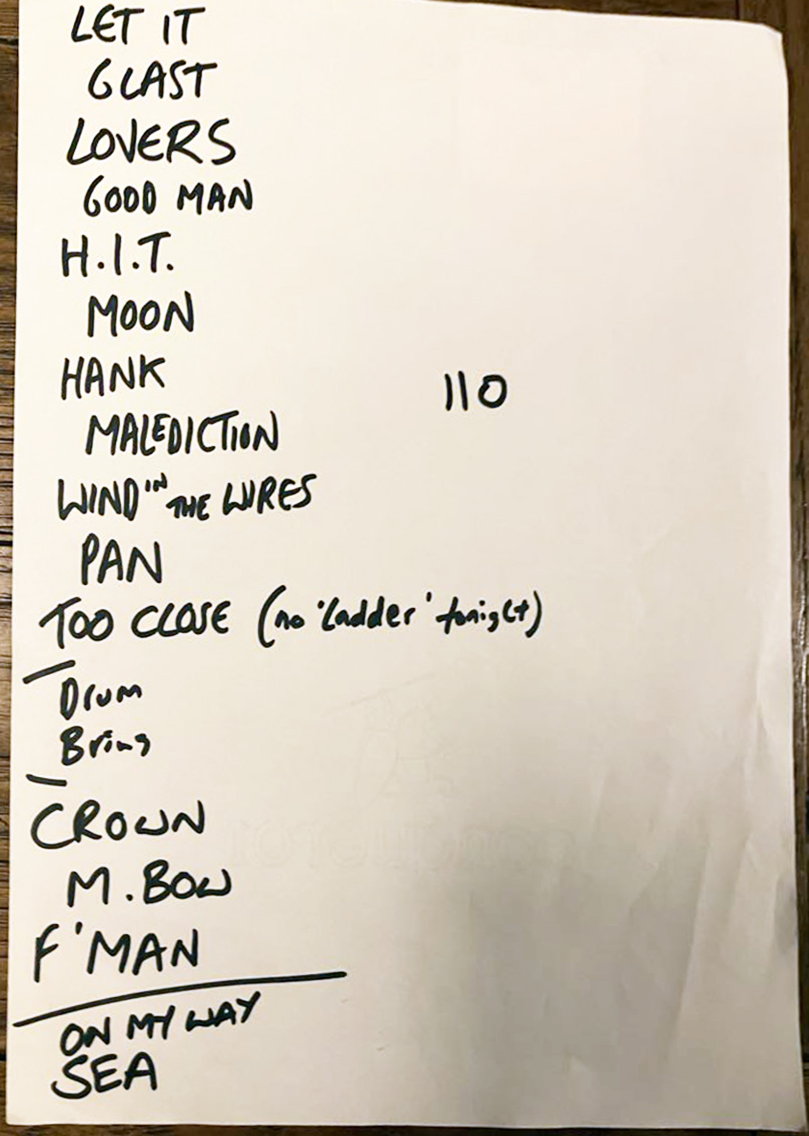 LET IT
GLAST
LOVERS
GOOD MAN
H.I.T.
MOON
HANK
110
MALEDICTION
WIND IN THE WIRES
PAN
TOO CLOSE (no 'Ladder' tonight)
Drum
Bring
CROWN
M. BOW
F'MAN
ON MY WAY
SEA